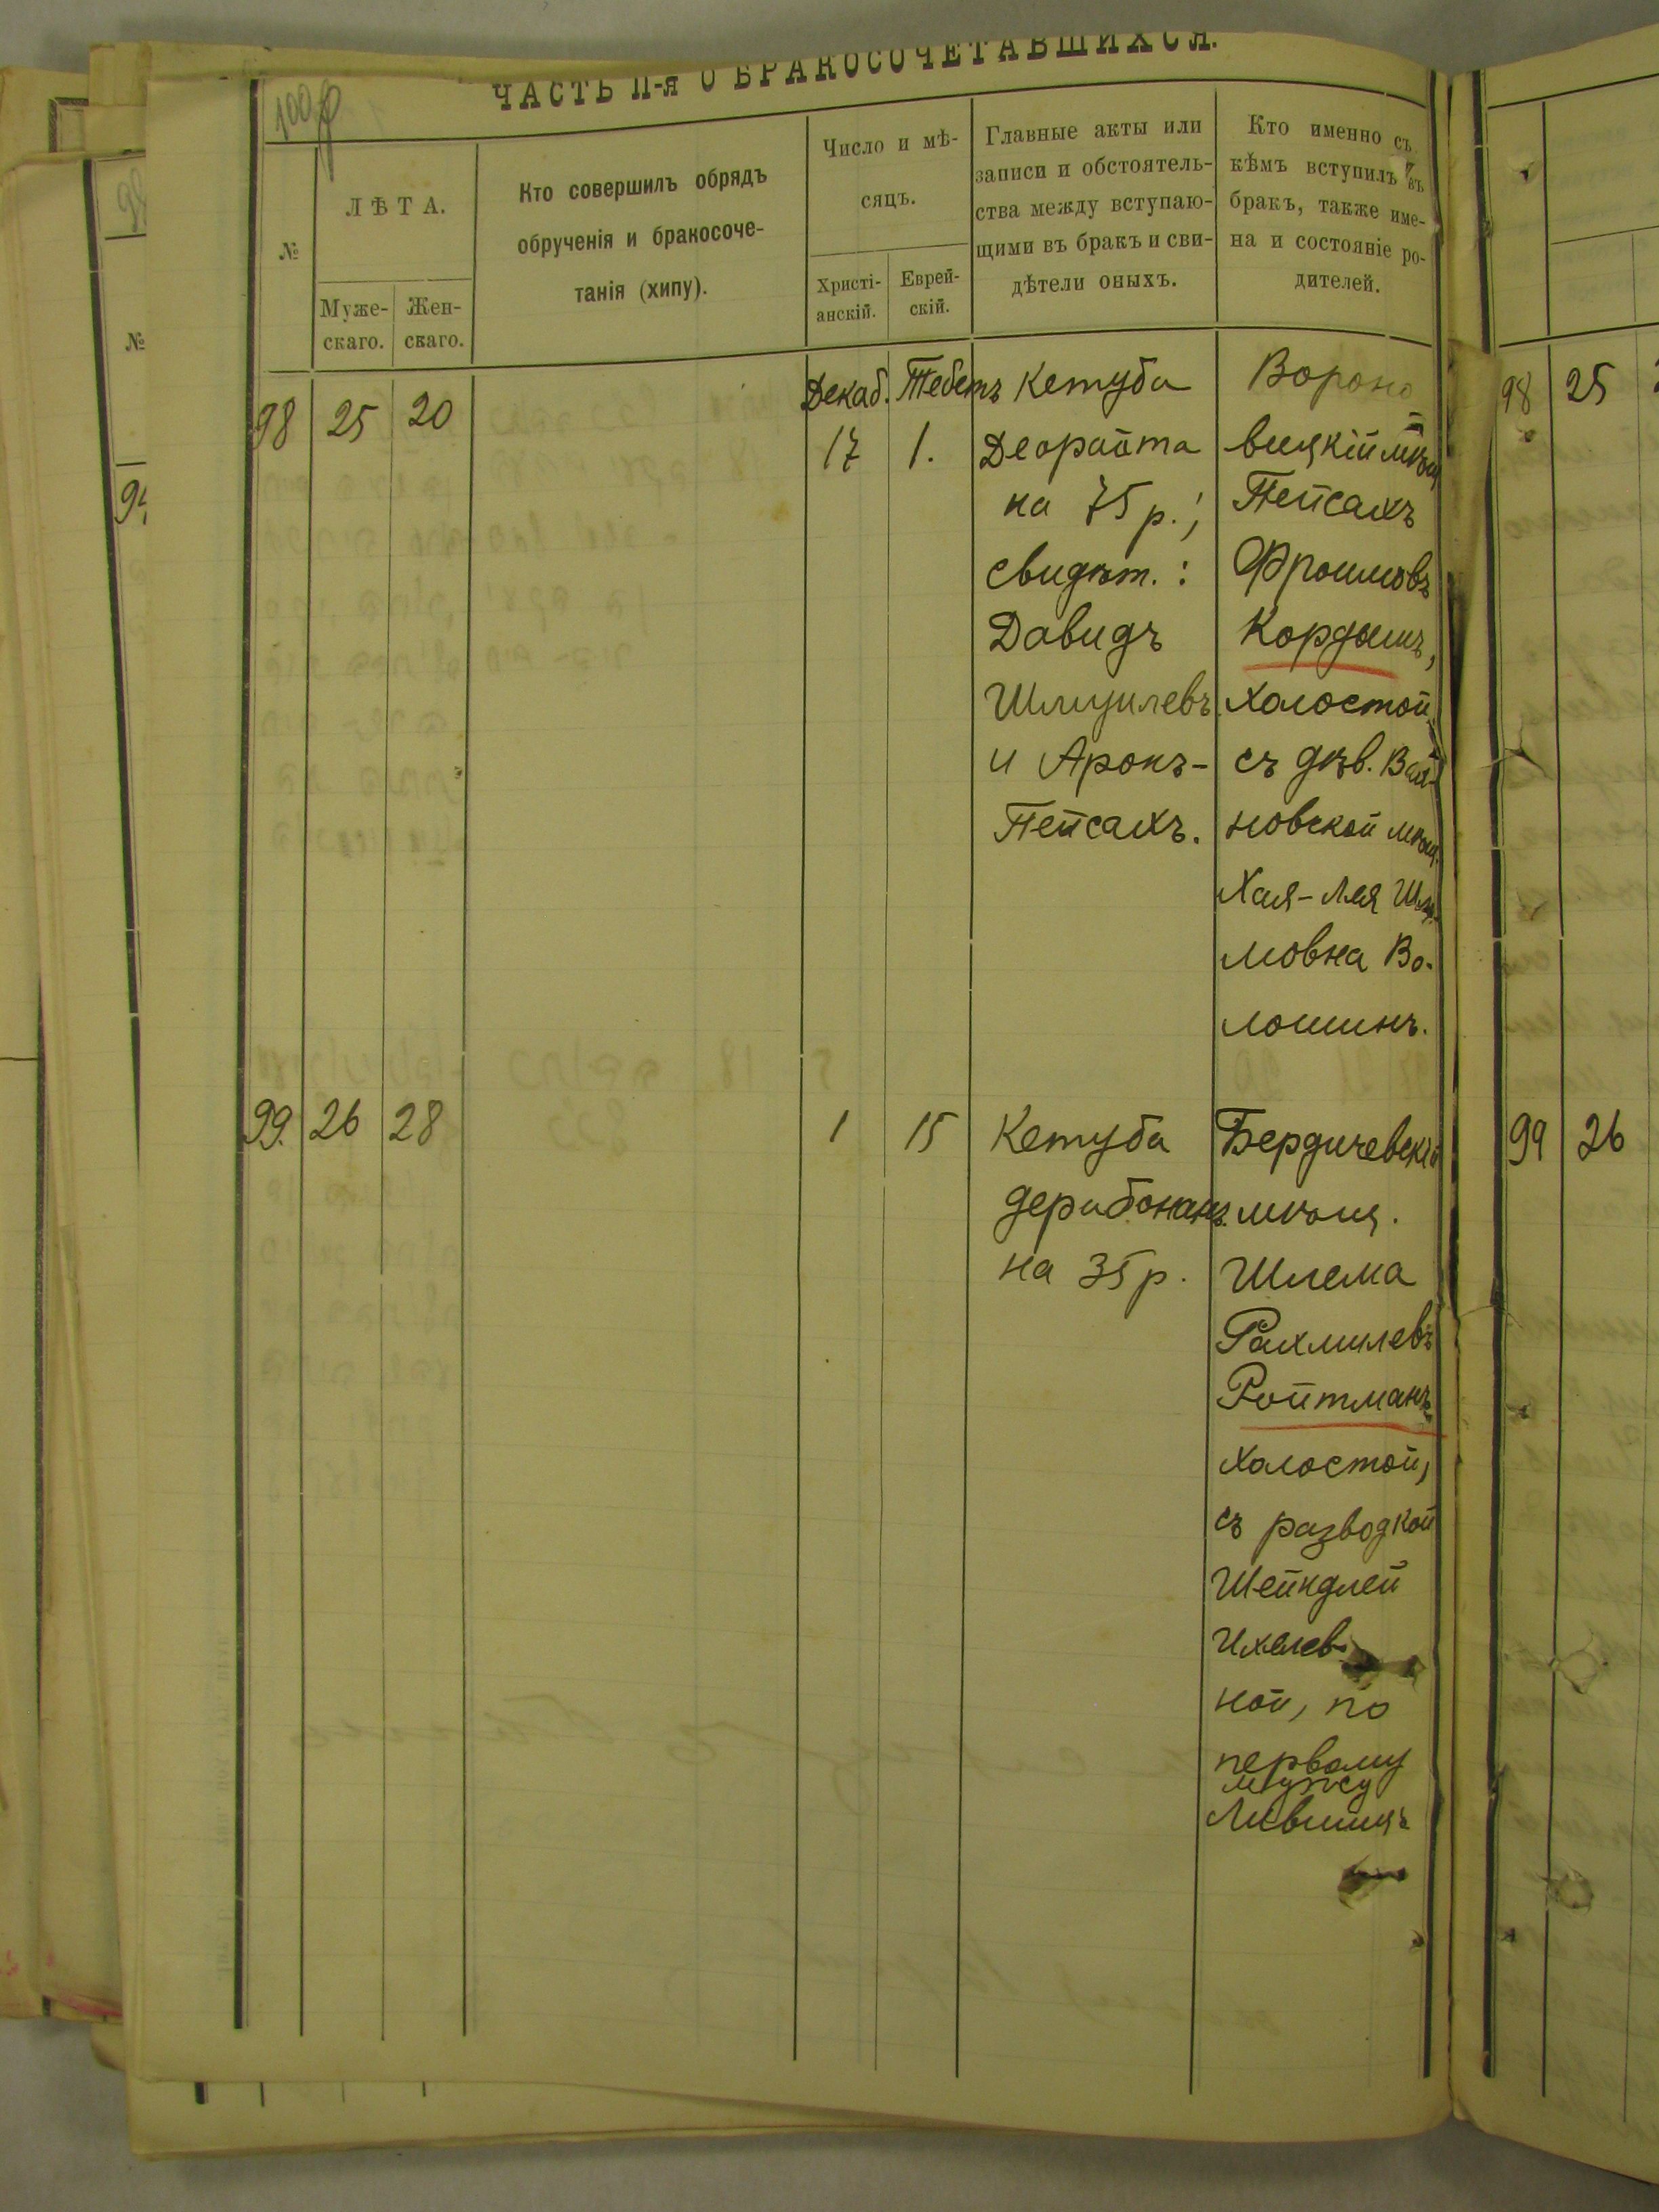 ЧАСТЬ II-я О БРАКОСОЧЕТАВШИХСЯ.
№
ЛѢТА.
Муже-
скаго.
Жен-
скаго.
Кто совершилъ обрядъ
обрученія и бракосоче-
танія (хипу).
Число и мѣ-
сяцъ.
Христі-
анскій.
Еврей-
скій.
Главные акты или
записи и обстоятель-
ства между вступаю-
щими въ бракъ и сви-
дѣтели оныхъ.
Кто именно съ
кѣмъ вступилъ въ
бракъ, также име-
на и состояніе ро-
дителей.
98 25 20
Декаб. Тебетъ
17 1.
Кетуба
Деорайта
на 75 р.;
свидѣт.:
Давидъ
Шмуилевъ
и Аронъ-
Пейсахъ.
Вороно
вицкій мѣщ
Пейсахъ
Фроимовъ
Кордышъ,
холостой,
съ дѣв.
новской мѣщ.
Хая-Лея
мовна Во-
лошинъ.
99. 26 28
1 15
Кетуба
дерабонанъ
на 35 р.
Бердичевскій
мѣщ.
Шлема
Рахмилевъ
Ройтманъ,
холостой,
съ разводкой
Шейндлей
Ихелев-
ной, по
первому
мужу
Лившицъ
98 25
99 26
№